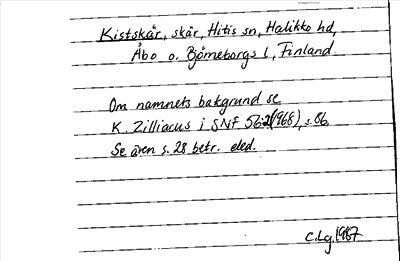 Kistskär, skär, Hitis sn, Halikko hd,
Åbo o. Björneborgs l, Finland.
Om namnets bakgrund se
K. Zilliacus i SNF 56:2(1968), s. 86.
Se även s. 28 betr. eled.
C.Lg. 1987